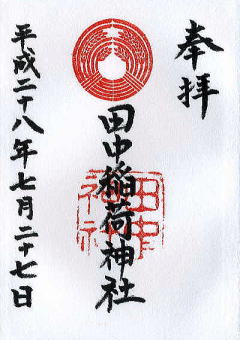 奉拝
田中稲荷神社
田中神社
平成二十八年七月二十七日